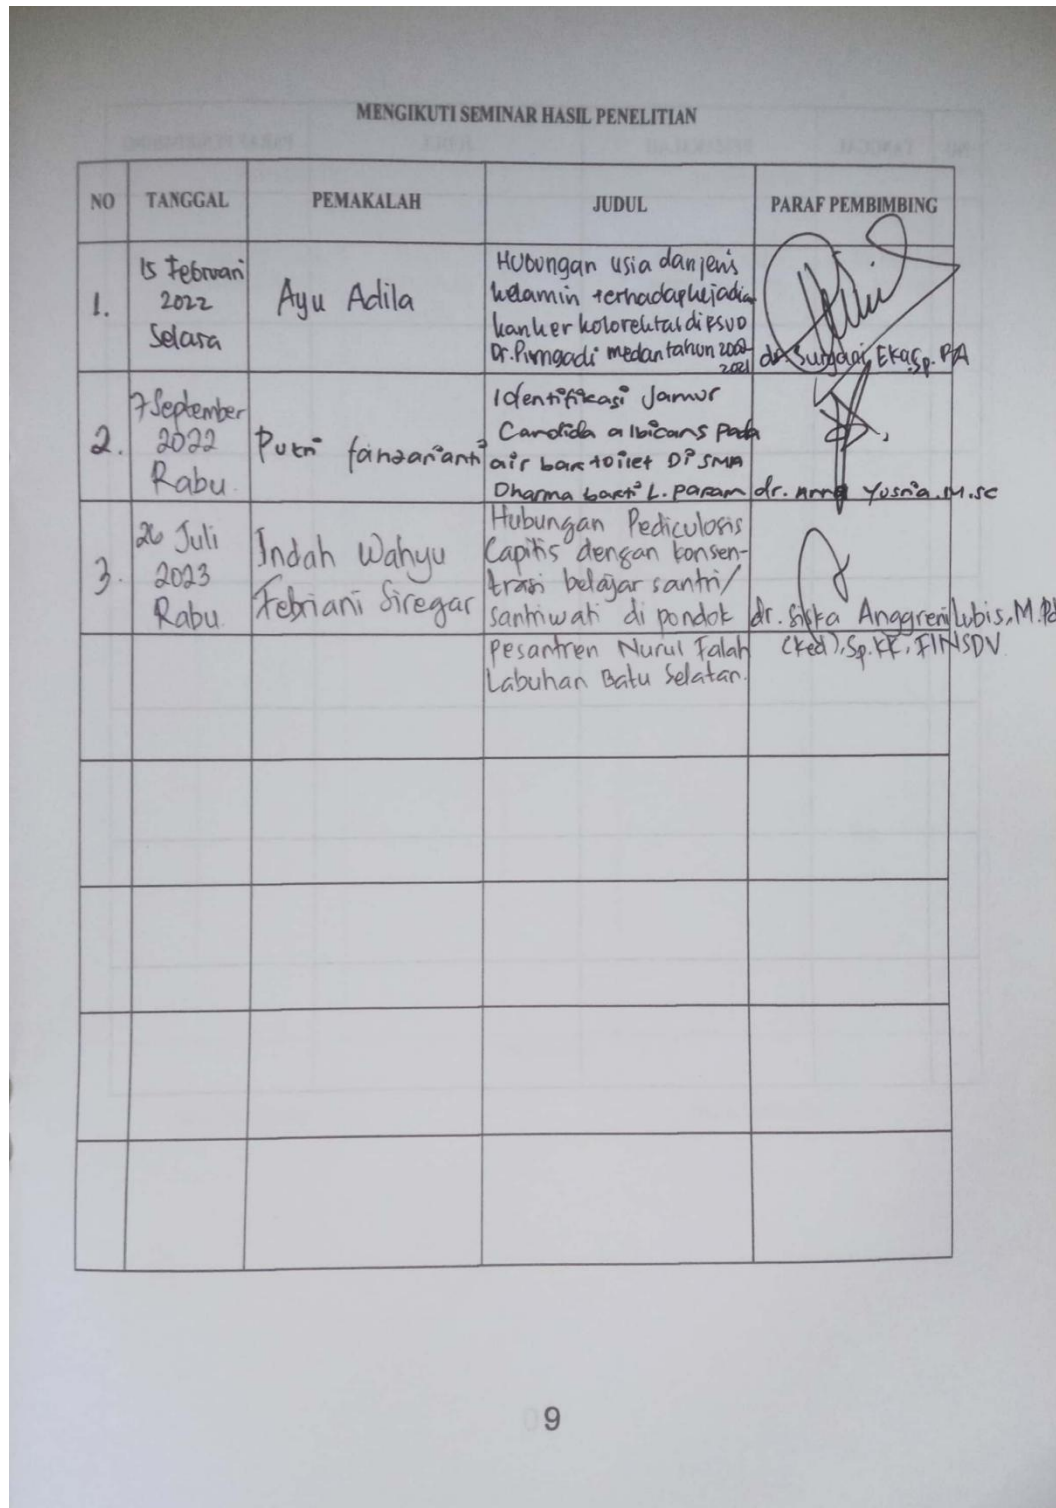 MENGIKUTI SEMINAR HASIL PENELITIAN
NO TANGGAL PEMAKALAH JUDUL PARAF PEMBIMBING
1.
15 Februari
2022
Selasa
Ayu Adila
Hubungan usia dan jenis
kelamin terhadap kejadian
kanker kolorektal di RSUD
Dr. Pirngadi medan tahun
2021
2.
7 September
2022
Rabu.
Putri
Identifikasi Jamur
Candida albicans pada
air bak toilet Di SMA
Dharma bakti L. Pakam
dr. Yusria, M.sc
3.
26 Juli
2023
Rabu.
Indah Wahyu
Febriani Siregar
Hubungan Pediculosis
Capitis dengan konsen-
trasi belajar santri/
santriwati di pondok
pesantren Nurul Falah
Labuhan Batu Selatan.
dr. Siska Anggreni Lubis, M.Pd
(Ked), Sp.KK, FINSDV
9